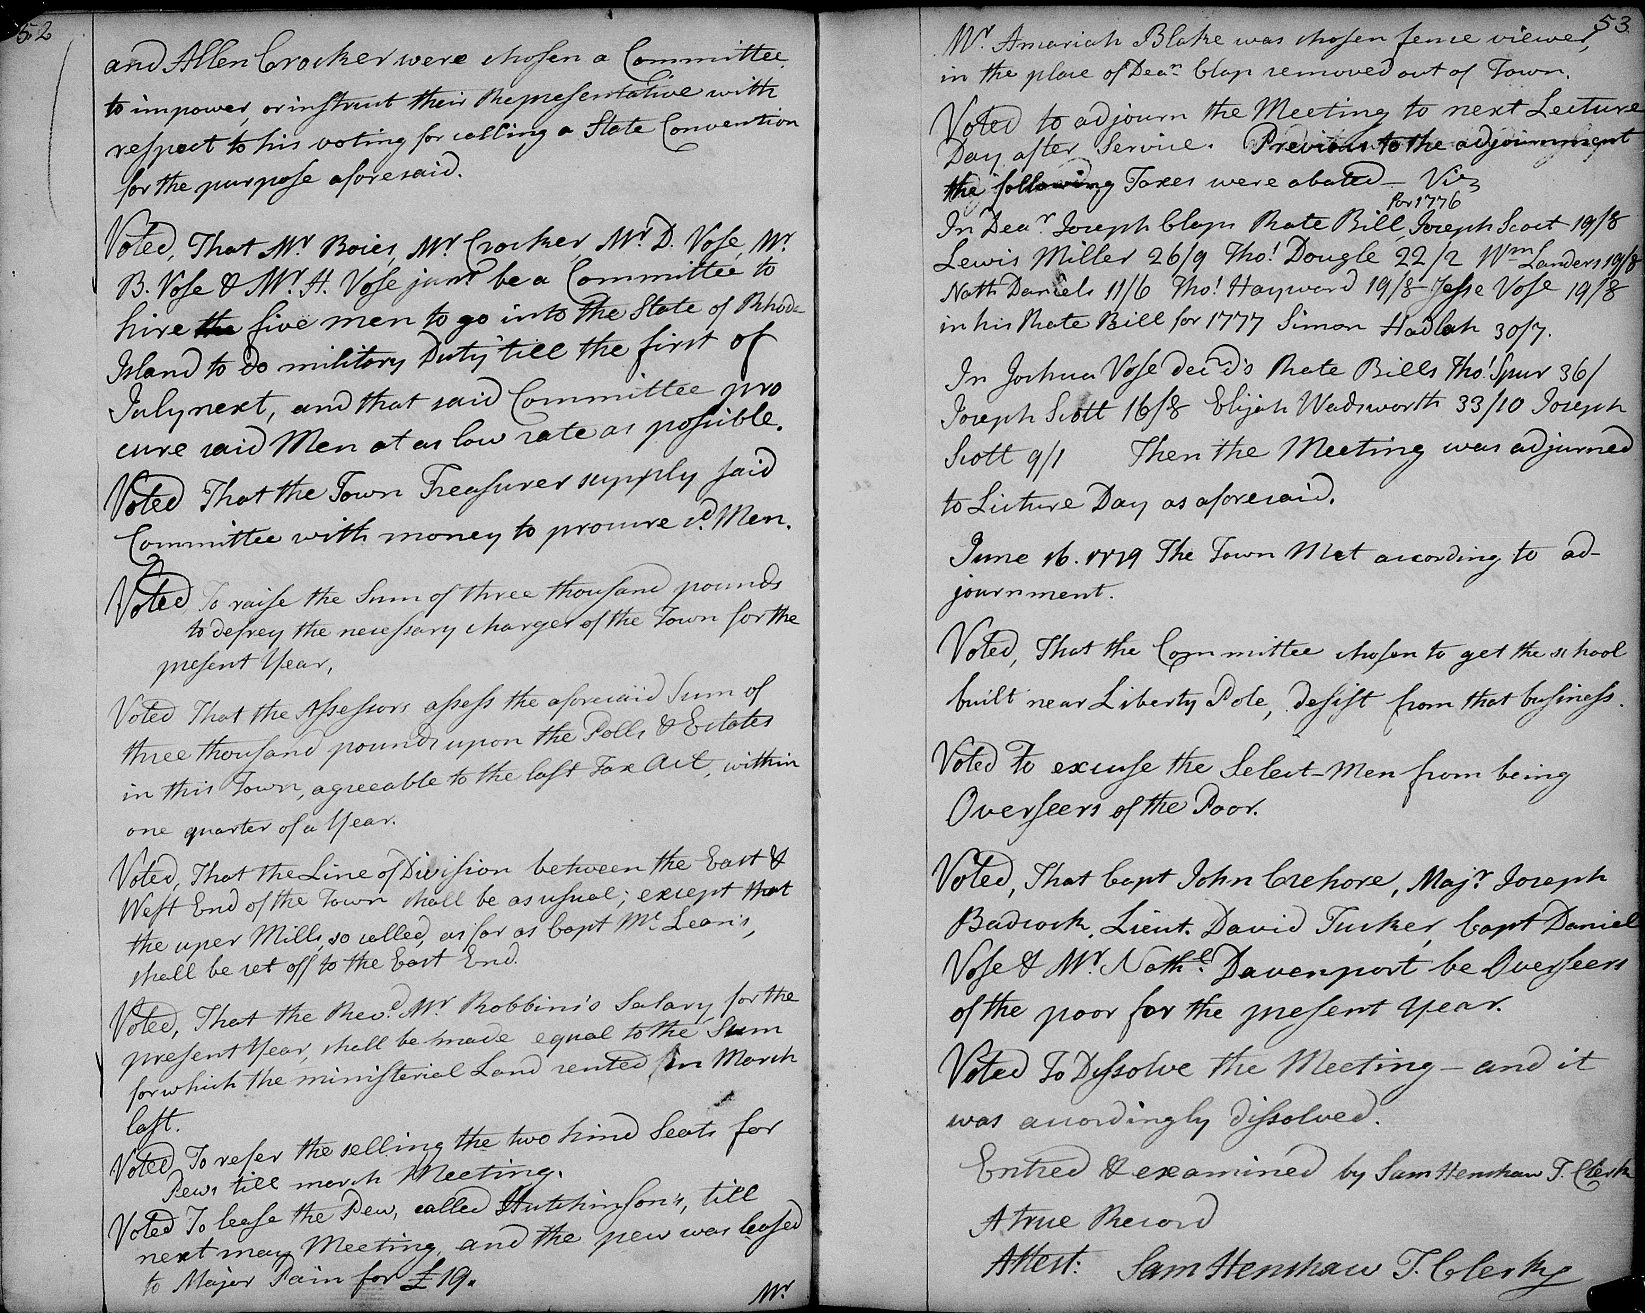 52
and Allen Crocker were chosen a Committee
to impower, or instruct their Representative with
respect to his voting for calling a State Convention
for the purpose aforesaid.
Voted, That Mr Boies, Mr Crocker, Mr D. Vose, Mr.
B. Vose & Mr. H. Vose junr be a Committee to
hire the five men to go into the State of Rhode
Island to do military Duty till the first of
July next, and that said Committee pro
cure said Men at as low rate as possible.
Voted That the Town Treasurer supply said
Committee with money to procure sd. Men.
Voted To raise the Sum of three thousand pounds
to defrey the necessary charges of the Town for the
present Year,
Voted That the Assessors assess the aforesaid Sum of
three thousand pounds upon the Polls & Estates
in this Town, agreeable to the last Tax Act, within
one quarter of a Year.
Voted, That the Line of Division between the East &
West End of the Town shall be as usual; except that
the uper Mills, so called, as far as Capt Mc Lean's,
shall be set off to the East End.
Voted, That the Revd. Mr. Robbins's Salary for the
present Year, shall be made equal to the Sum
for which the ministerial Land rented in March
last.
Voted To refer the selling the two hind Seats for
Pews till march Meeting.
Voted To lease the Pew, called Hutchinson's, till
next may Meeting, and the pew was leased
to Major Pain for £19.
Mr.
53
Mr. Amariah Blake was chosen fence viewer,
in the place of Dean Clap removed out of Town.
Voted to adjourn the Meeting to next Lecture
Day after Service. Previous to the adjournment
the following Taxes were abated — Viz
for 1776
In Dear. Joseph Claps Rate Bill, Joseph Scott 19/8
Lewis Miller 26/9 Tho! Dougle 22/2 Wm Landers 19/8
Nath Daniels 11/6 Tho! Hayward 19/8 Jesse Vose 19/8
in his Rate Bill for 1777 Simon Hadlah 30/7.
In Joshua Vose decd's Rate Bills Tho! Spur 36/
Joseph Scott 16/8 Elijah Wadsworth 33/10 Joseph
Scott 9/1 Then the Meeting was adjurned
to Licture Day as aforesaid.
June 16. 1779 The Town Met according to ad-
journment.
Voted, That the Committee chosen to get the school
built near Liberty Pole, desist from that business.
Voted To excuse the Select-Men from being
Overseers of the Poor.
Voted, That Capt John Crehore, Majr. Joseph
Badcock, Lieut. David Tucker, Capt Daniel
Vose & Mr. Nathl. Davenport be Overseers
of the poor for the present Year.
Voted To Dissolve the Meeting - and it
was accordingly dissolved.
Entred & examined by Sam Henshaw T. Clerk
A true Record
Attest: Sam Henshaw T. Clerk